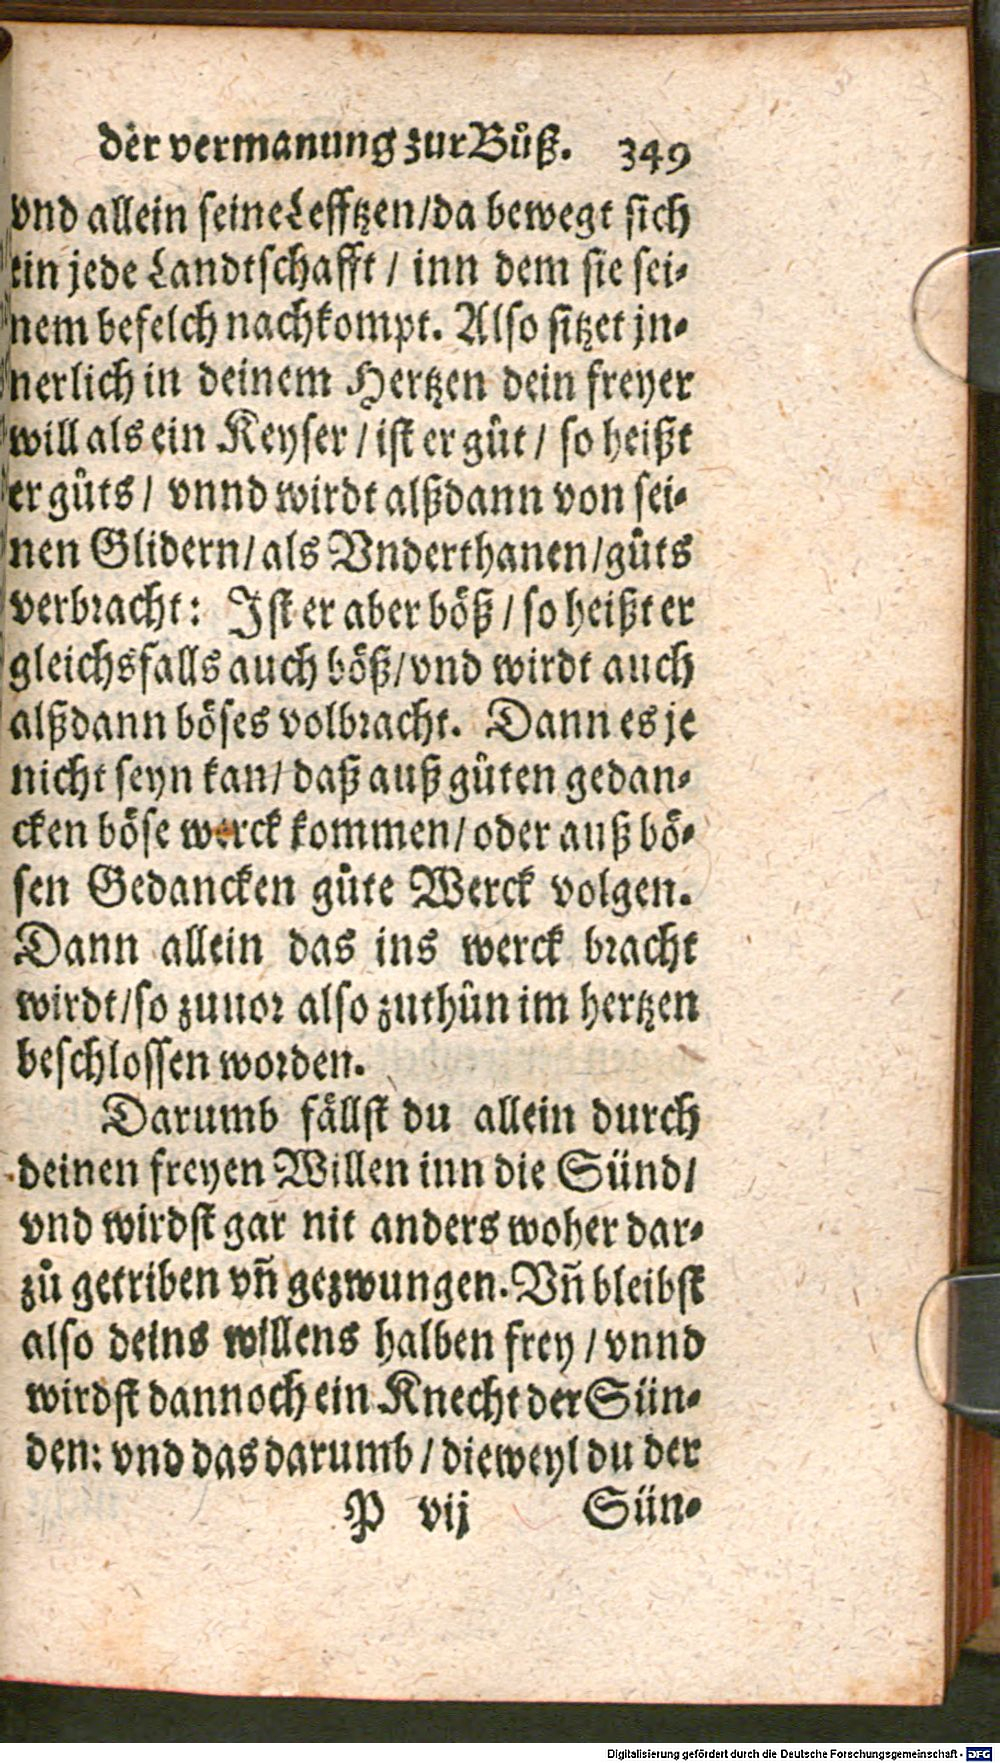 der vermanung zur Bůß. 349
vnd allein seine Lefftzen/da bewegt sich
ein jede Landtschafft / inn dem sie sei-
nem befelch nachkompt. Also sitzet jn-
nerlich in deinem Hertzen dein freyer
will als ein Keyser / ist er gůt / so heißt
er gůts / vnnd wirdt alßdann von sei-
nen Glidern/als Vnderthanen/gůts
verbracht: Ist er aber böß / so heißt er
gleichsfalls auch böß/vnd wirdt auch
alßdann böses volbracht. Dann es je
nicht seyn kan/daß auß gůten gedan-
cken böse werck kommen/oder auß bö-
sen Gedancken gůte Werck volgen.
Dann allein das ins werck bracht
wirdt/so zuuor also zuthůn im hertzen
beschlossen worden.
Darumb fällst du allein durch
deinen freyen Willen inn die Sünd/
vnd wirdst gar nit anders woher dar-
zů getriben vñ gezwungen. Vñ bleibst
also deins willens halben frey / vnnd
wirdst dannoch ein Knecht der Sün-
den: vnd das darumb / dieweyl du der
P vij Sün-
Digitalisierung gefördert durch die Deutsche Forschungsgemeinschaft - DFG